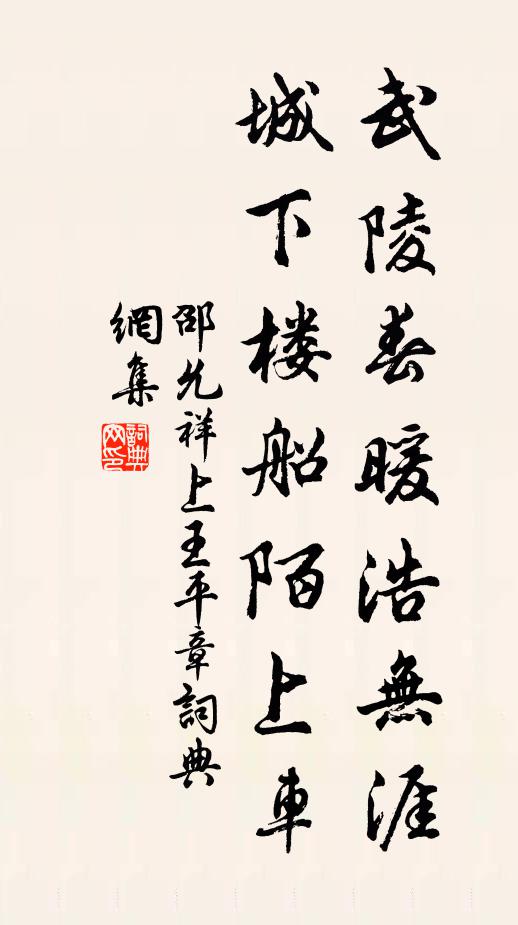 武陵春暖浩無涯
城下楼船陌上車
邵允祥上王平章詞典
網集
詞典網印